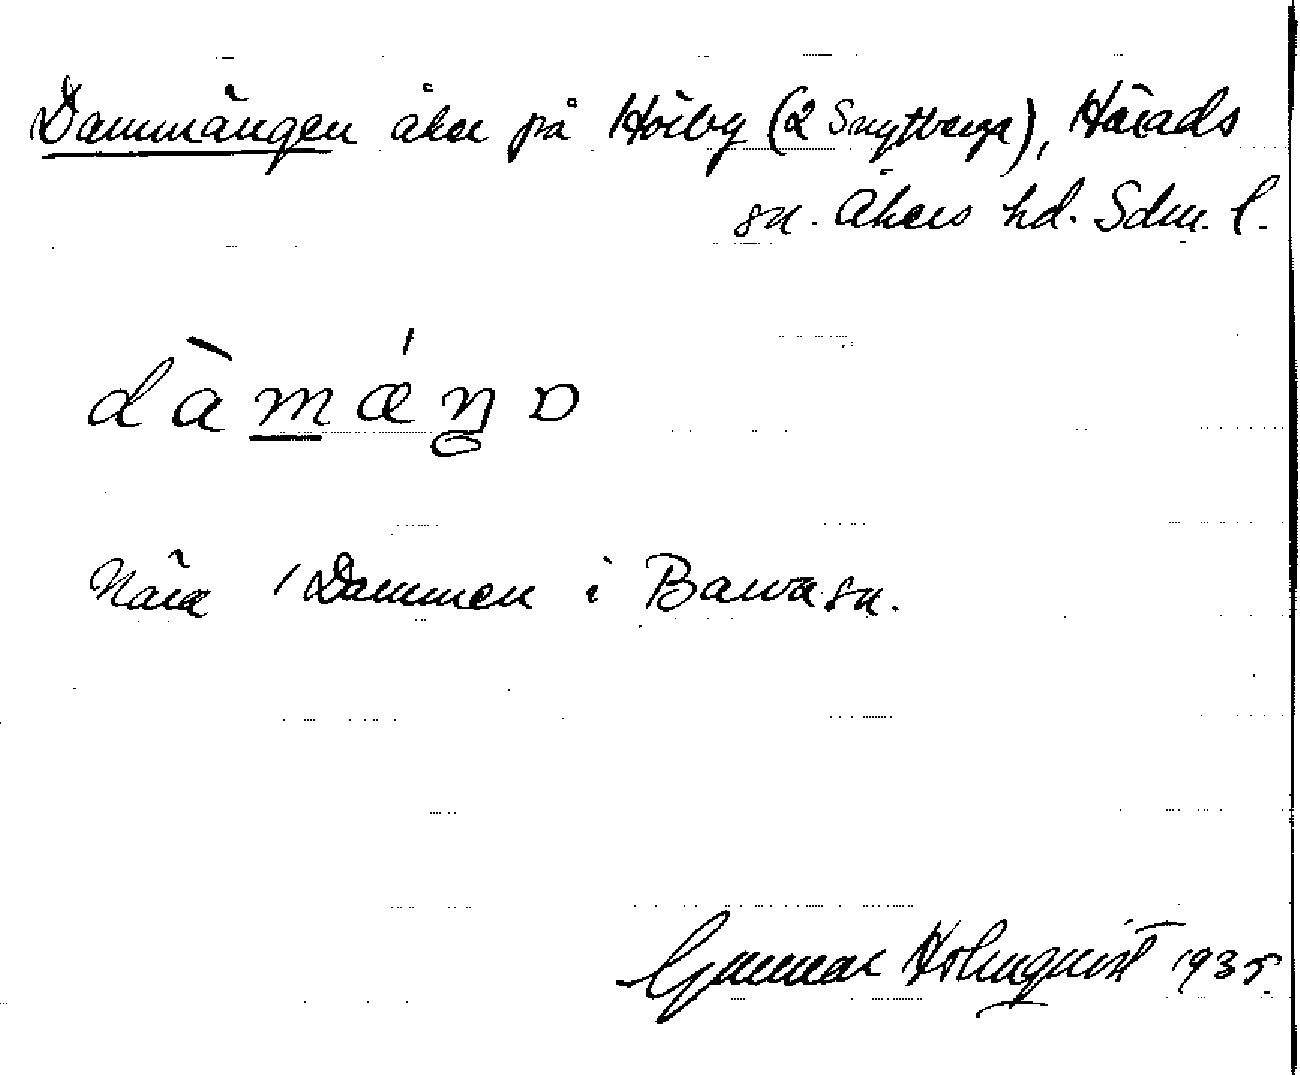 Dammängen åker på Hörby (2 Snytberga), Härads
sn. Åkers hd. Sdm. l.
dàmæ´ŋ
Nära Dammen i Barva sn.
Gunnar Holmquist 1935.